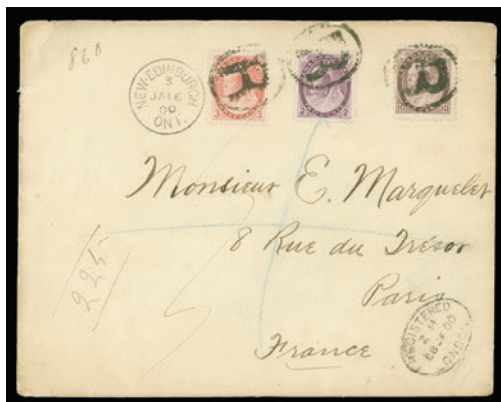 860
NEW-EDINBURGH
3
JA 16
00
ONT.
R
R
R
3 3
2 2
Monsieur E. Marquelet
8 Rue du Trésor
Paris
France
225
REGISTERED
00